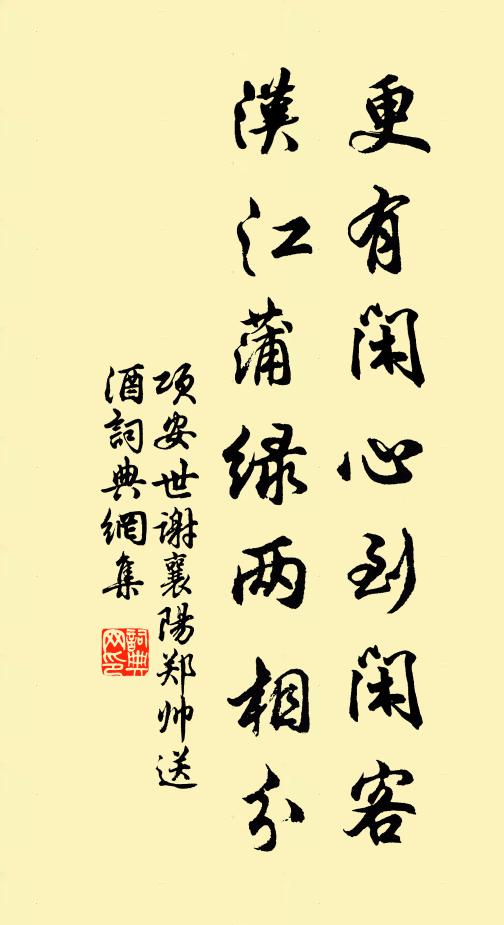 更有闲心到闲客
漢江蒲绿两相分
项安世谢襄陽郑帅送
酒詞典網集
詞典网印